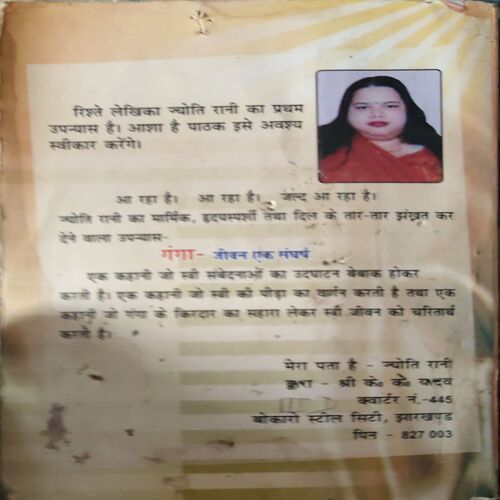 रिश्ते लेखिका ज्योति रानी का प्रथम
उपन्यास है। आशा है पाठक इसे अवश्य
स्वीकार करेंगे।
आ रहा है। आ रहा है। जल्द आ रहा है।
ज्योति रानी का मार्मिक, हृदयस्पर्शी तथा दिल के तार-तार झंख्रत कर
देने वाला उपन्यास-
गंगा- जीवन एक संघर्ष
एक कहानी जो स्त्री संबेदनाओं का उदघाटन बेबाक होकर
करती है। एक कहानी जो स्त्री की पीड़ा का वर्णन करती है तथा एक
कहानी जो गंगा के किरदार का सहारा लेकर स्त्री जीवन को चरितार्थ
करती है।
मेरा पता है - ज्योति रानी
द्वारा - श्री के० के० यादव
क्वार्टर नं.-445
बोकारो स्टील सिटी, झारखण्ड
पिन - 827 003